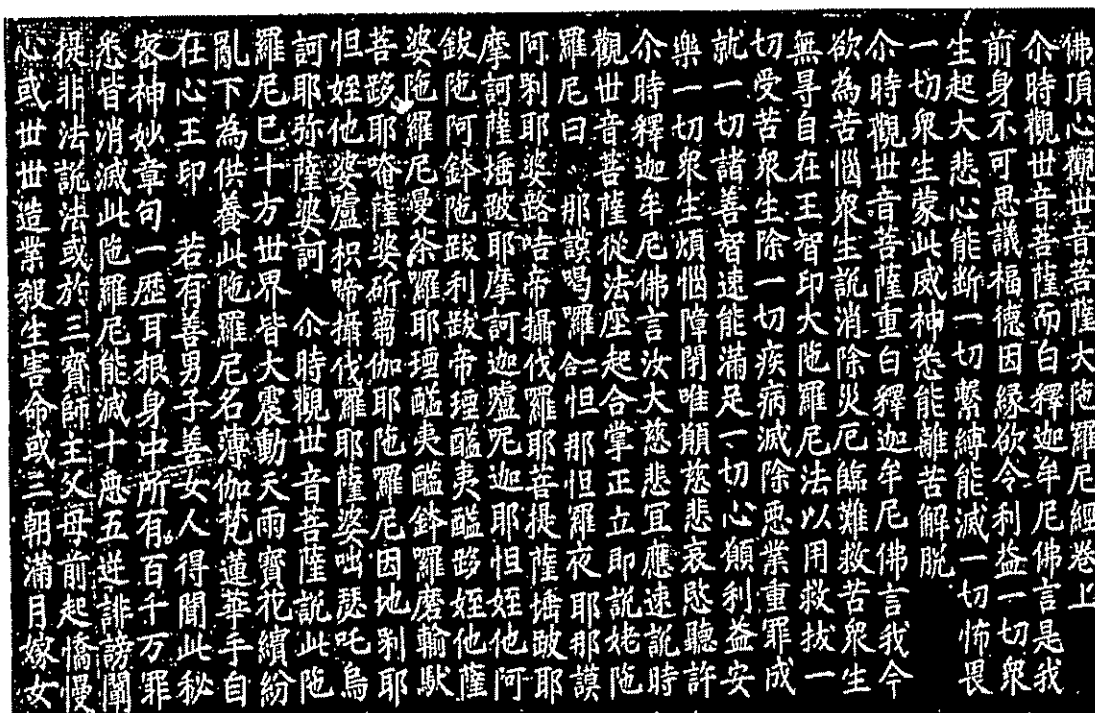 佛頂心觀世音菩薩大陁羅尼經卷上
尒時觀世音菩薩而白釋迦牟尼佛言是我
前身不可思議福德因緣欲令利益一切衆
生起大悲心能断一切繫縛能滅一切怖畏
一切衆生蒙此威神悉能離苦解脫
尒時觀世音菩薩重白釋迦牟尼佛言我今
欲為苦惱衆生說消除灾厄臨難救苦衆生
無㝵自在王智印大陁羅尼法以用救拔一
切受苦衆生除一切疾病滅除惡業重罪成
就一切諸善智速能滿足一切心願利益安
樂一切衆生煩惱障閉唯願慈悲哀愍聽許
尒時釋迦牟尼佛言汝大慈悲冝應速說時
觀世音菩薩從法座起合掌正立即說姥陁
羅尼曰 那謨喝囉二合怛那怛羅夜耶那謨
阿剎耶婆路咭帝攝伐羅耶菩提薩埵跛耶
摩訶薩埵跛耶摩訶迦嚧昵迦耶怛姪他阿
鈸陁阿鈝陁跋利跋帝堙醯夷醯跢姪他薩
婆陁羅尼曼荼羅耶堙醯夷醯鈝羅磨輸馱
菩跢耶唵薩婆斫蒭伽耶陁羅尼因地剎耶
怛姪他婆嚧枳啼攝伐囉耶薩婆咄瑟吒烏
訶耶弥薩婆訶 尒時觀世音菩薩說此陁
羅尼巳十方世界皆大震動天雨寶花繽紛
亂下為供養此陁羅尼名薄伽梵蓮華手自
在心王印 若有善男子善女人得聞此秘
密神妙章句一歷耳根身中所有百千万罪
悉皆消滅此陁羅尼能滅十惡五逆誹謗闡
提非法說法或於三寶師主父母前起憍慢
心或世世造業殺生害命或三朝滿月嫁女